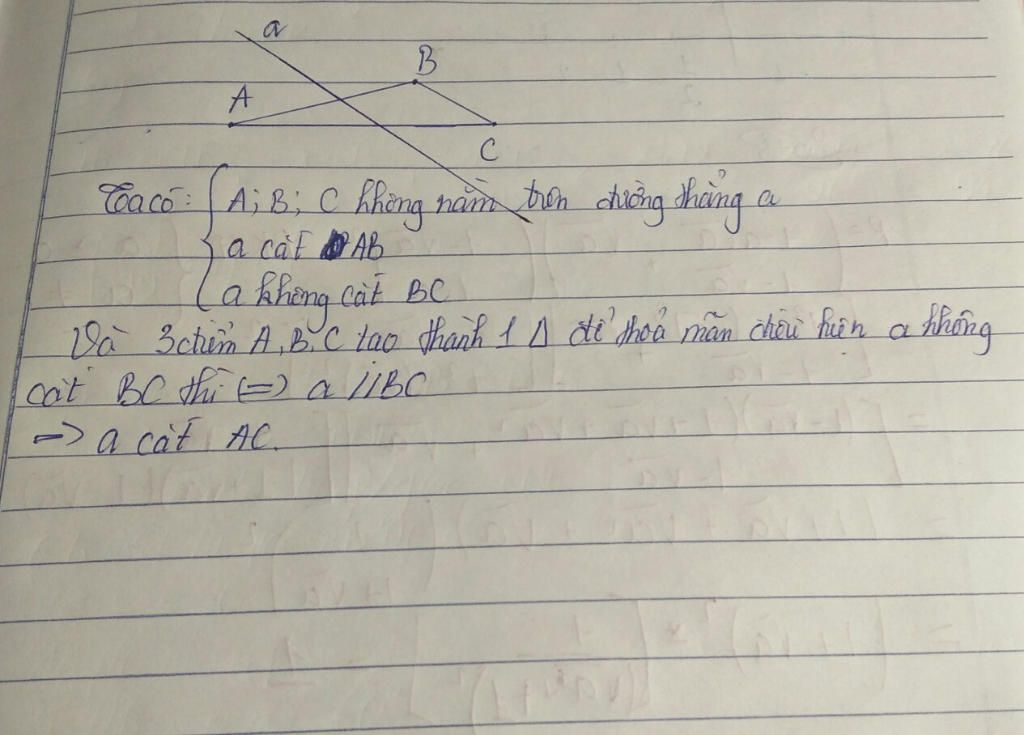 a
B
A
C
Ta có: { A; B; C không nằm trên đường thẳng a
a cắt AB
a không cắt BC
Và 3 điểm A, B, C tạo thành 1 Δ để thoả mãn điều kiện a không
cắt BC thì (=) a // BC
=> a cắt AC.